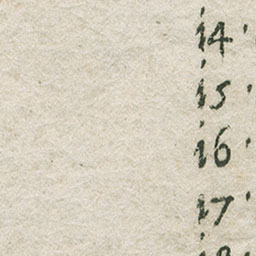 14.
15.
16.
17.
18.